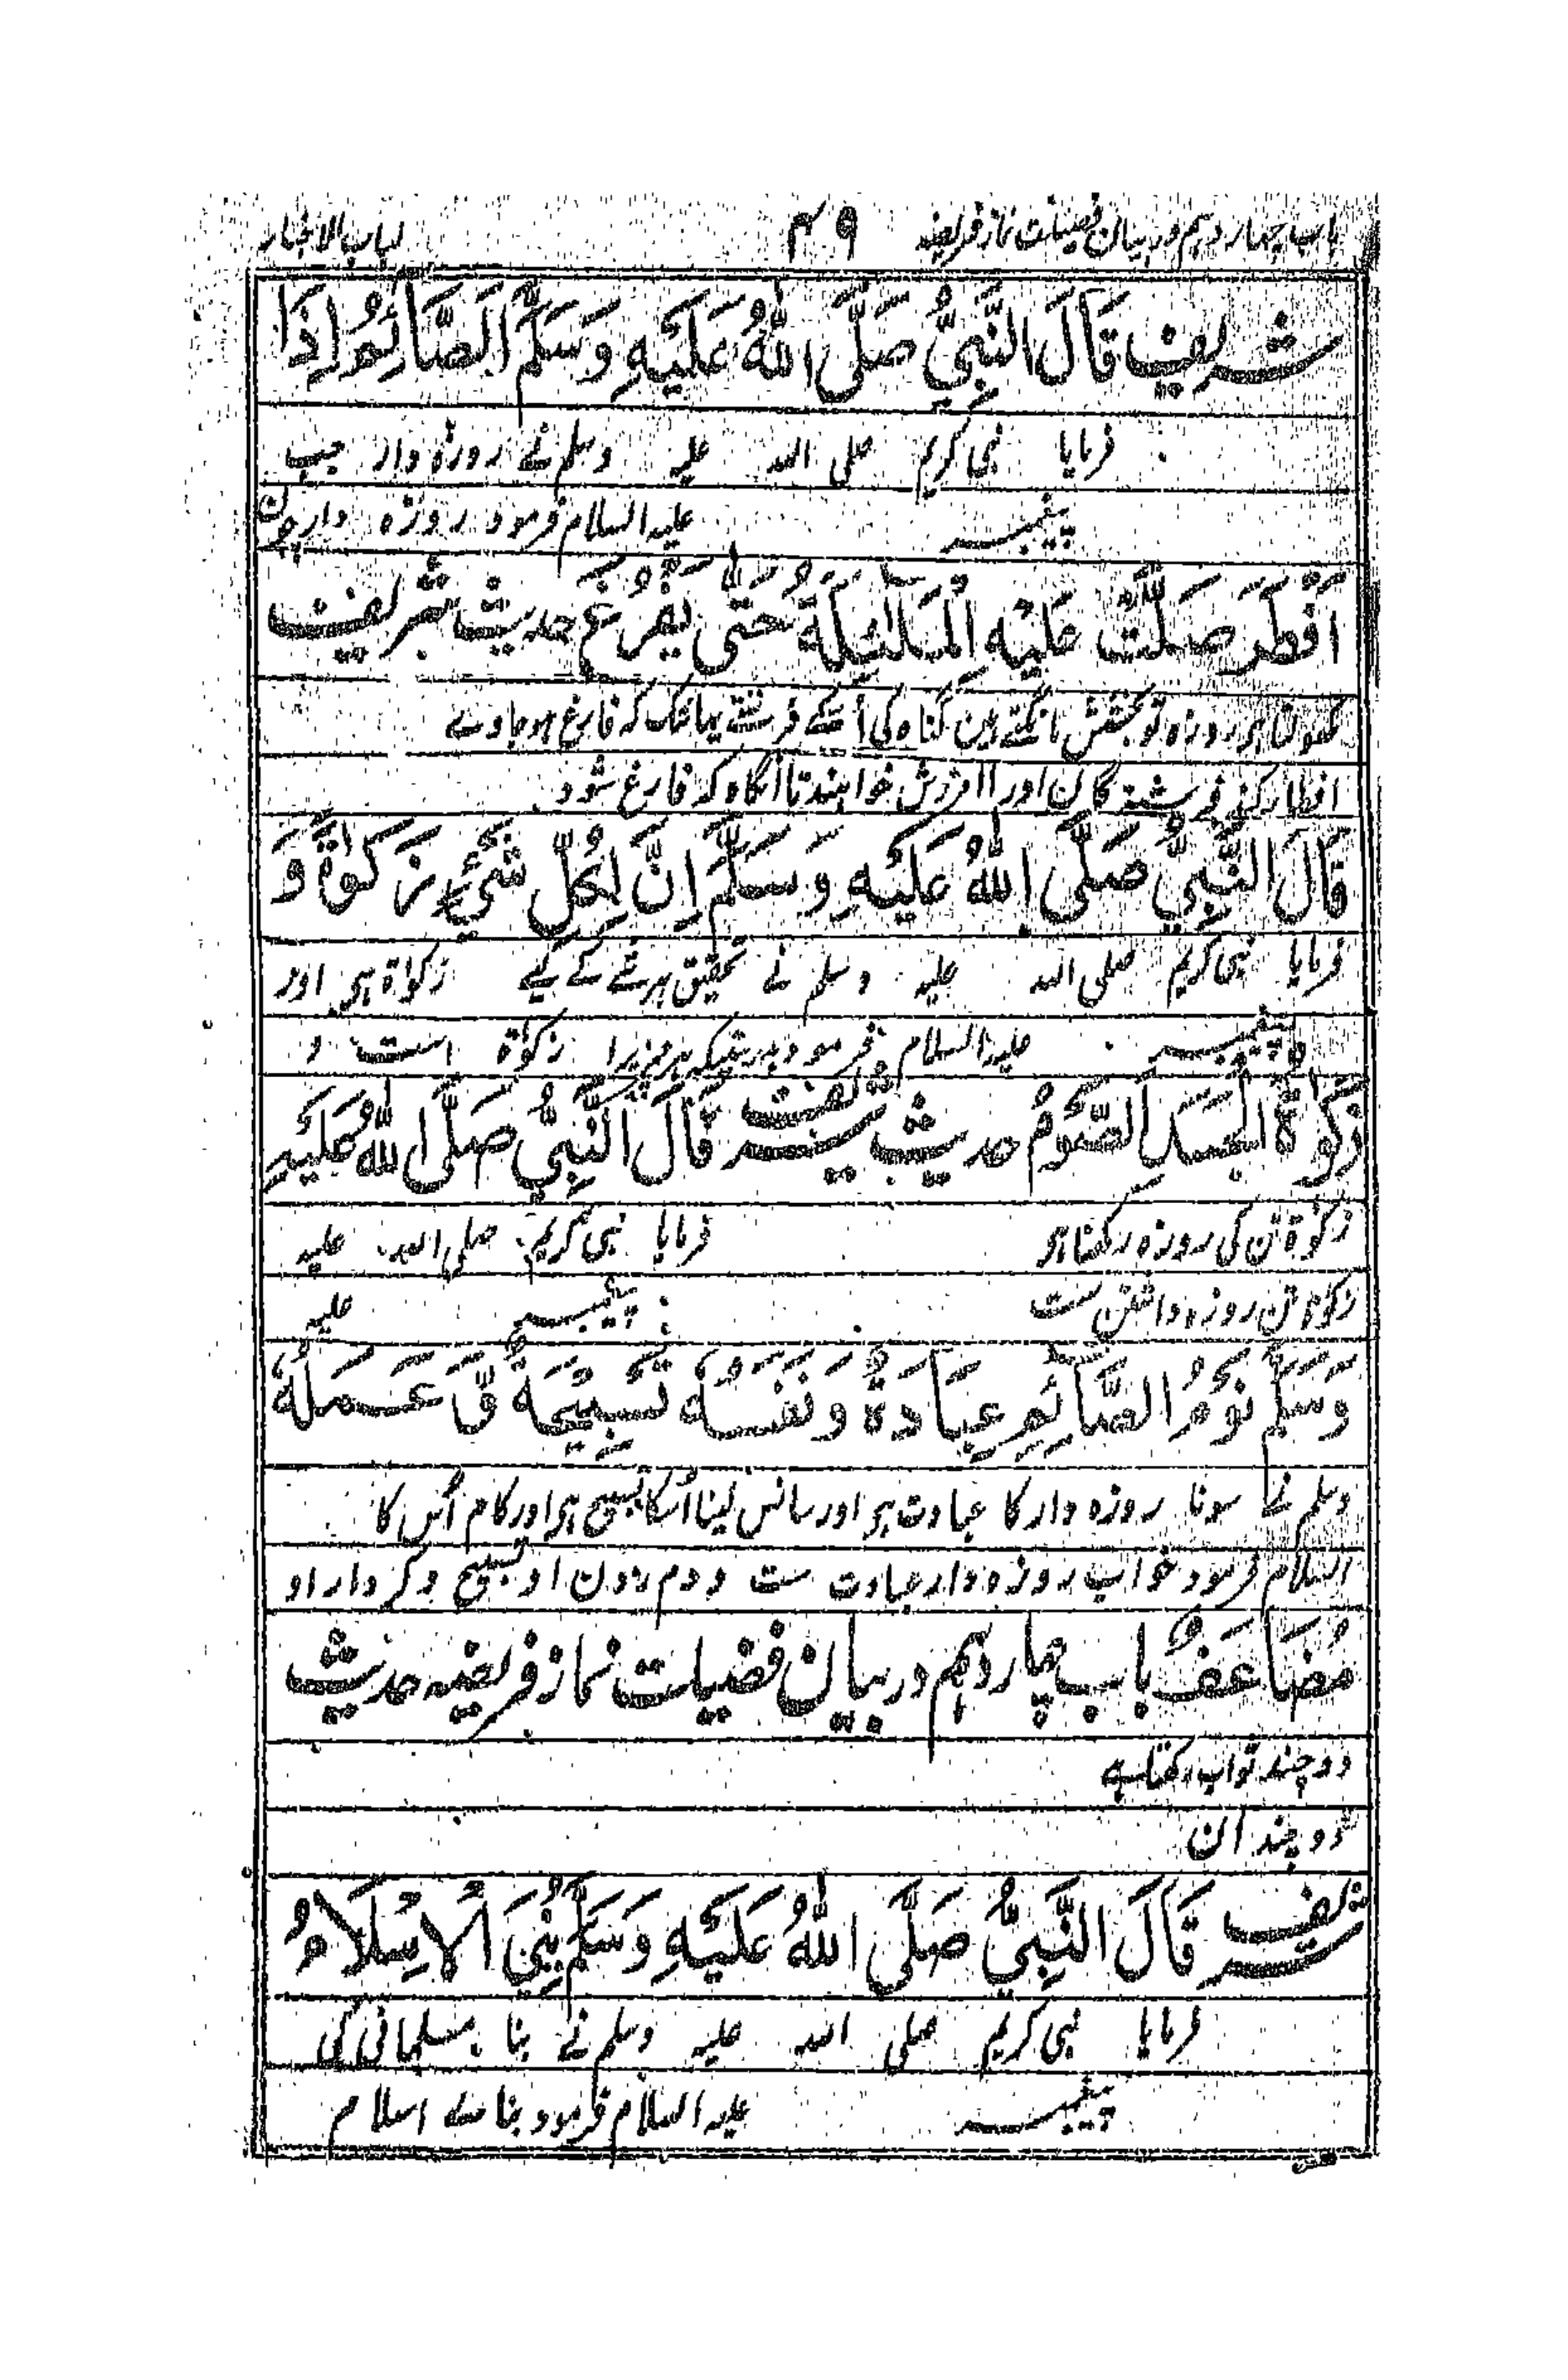 باب چهاردهم در بیان فضیلت نماز فریضه ۴۹ لباب الاخبار
شریف قَالَ النَّبِيُّ صَلَّى اللهُ عَلَيْهِ وَسَلَّمَ اَلصَّائِمُ اِذَا
فرمایا نبی کریم صلی اللہ علیہ وسلم نے روزہ دار جب
پیغمبر علیہ السلام فرمود روزہ دار چون
اَفْطَرَ صَلَّتْ عَلَيْهِ الْمَلَائِكَةُ حَتّٰى يَفْرُغَ حدیث شریف
کھولتا ہر روزہ تو بخشش مانگتے ہین گناہ کی اُسکے فرشتے یہانتک کہ فارغ ہو جاوے
افطار کند فرشتگان اورا آمرزش خواہند تا آنگاہ کہ فارغ شود
قَالَ النَّبِيُّ صَلَّى اللهُ عَلَيْهِ وَسَلَّمَ اِنَّ لِكُلِّ شَيْءٍ زَكٰوةٌ وَ
فرمایا نبی کریم صلی اللہ علیہ وسلم نے تحقیق ہر شے کے لیے زکواۃ ہی اور
پیغمبر علیہ السلام فرمود بدرستیکہ ہر چیز را زکوٰۃ است و
زَكٰوةُ الْجَسَدِ الصَّوْمُ حدیث شریف قَالَ النَّبِيُّ صَلَّى اللهُ عَلَيْهِ
زکوٰۃ تن کی روزہ رکھنا ہی فرمایا نبی کریم صلی اللہ علیہ
زکوٰۃ تن روزہ داشتن ست پیغمبر علیہ
وَسَلَّمَ نَوْمُ الصَّائِمِ عِبَادَةٌ وَنَفَسُهٗ تَسْبِيْحَةٌ وَّعَمَلُهٗ
وسلم نے سونا روزہ دار کا عبادت ہی اور سانس لینا اُسکا تسبیح ہی اور کام اُس کا
السلام فرمود خواب روزہ دار عبادت ست و دم زدن او تسبیح و کردار او
مُضَاعَفٌ باب چہاردہم در بیان فضیلت نماز فریضہ حدیث
دو چند ثواب رکھتا ہے
دو چند آن
شریف قَالَ النَّبِيُّ صَلَّى اللهُ عَلَيْهِ وَسَلَّمَ بُنِيَ الْاِسْلَامُ
فرمایا نبی کریم صلی اللہ علیہ وسلم نے بنا مسلمانی کی
پیغمبر علیہ السلام فرمود بنائے اسلام